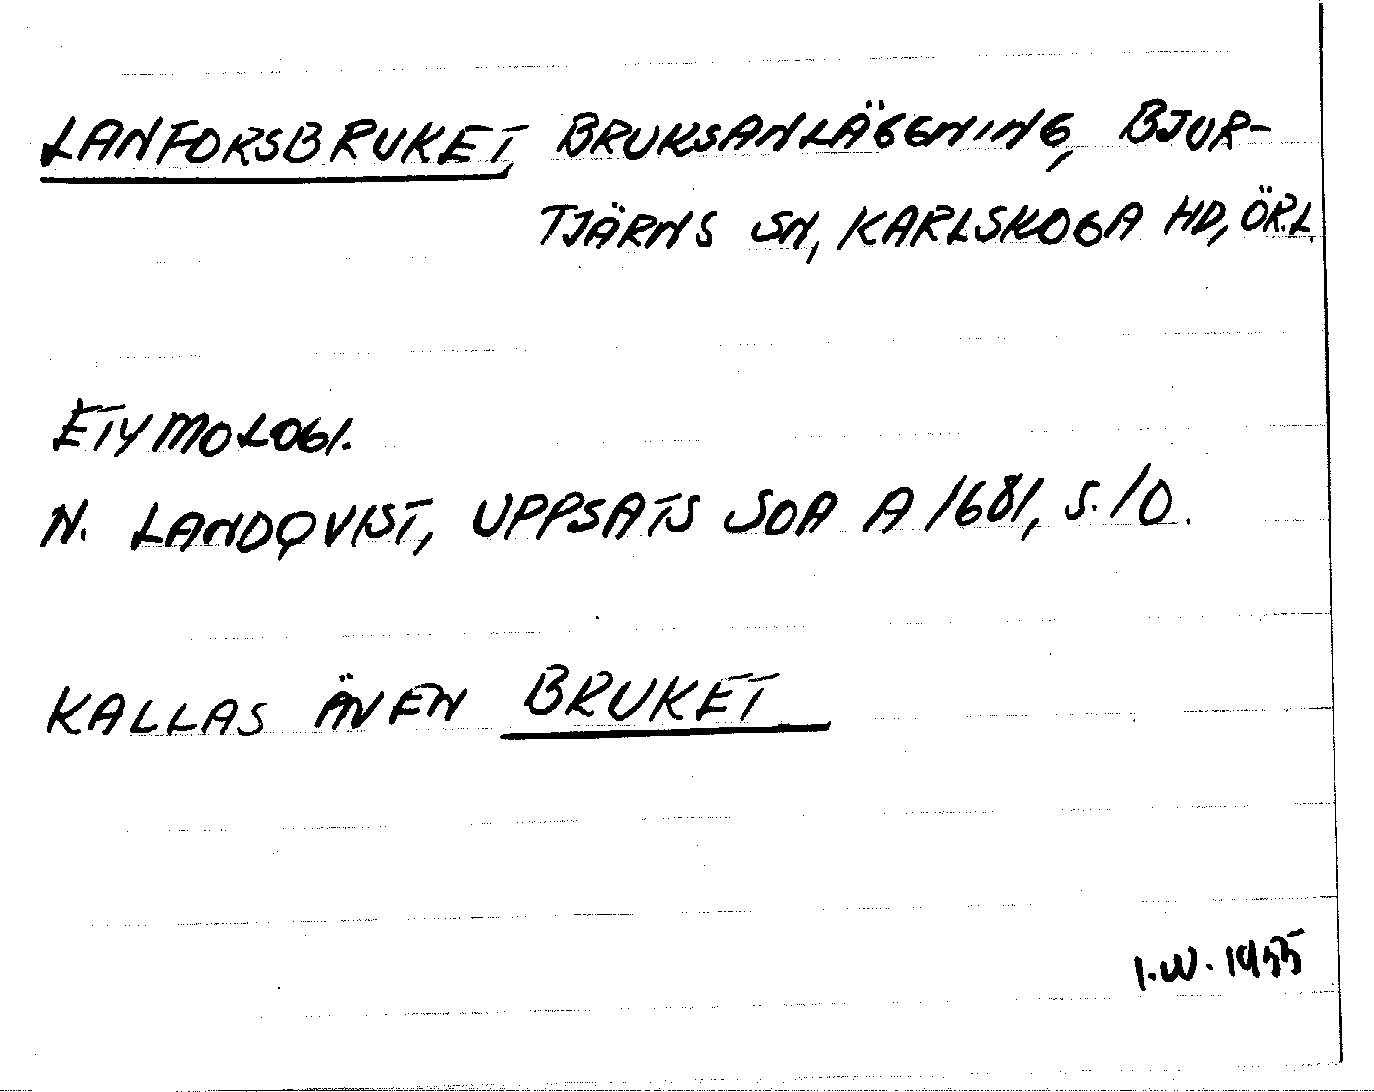 LANFORSBRUKET, BRUKSANLÄGGNING, BJUR-
TJÄRNS SN, KARLSKOGA HD, ÖR.L.
ETYMOLOGI.
N. LANDQVIST, UPPSATS SOA A 1681, S. 10.
KALLAS ÄVEN BRUKET
I.W. 1955